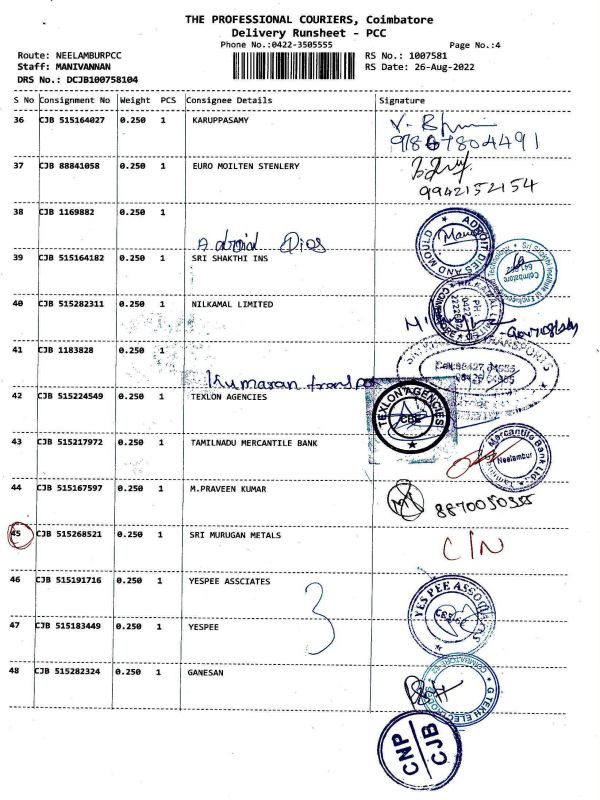 THE PROFESSIONAL COURIERS, Coimbatore
Delivery Runsheet - PCC
Phone No.:0422-3505555 Page No.:4
Route: NEELAMBURPCC RS No.: 1007581
Staff: MANIVANNAN RS Date: 26-Aug-2022
DRS No.: DCJB100758104
S No Consignment No Weight PCS Consignee Details Signature
36 CJB 515164027 0.250 1 KARUPPASAMY
97867804491
37 CJB 88841058 0.250 1 EURO MOILTEN STENLERY
9942152154
38 CJB 1169882 0.250 1
Adroid Dies
ADROIT DIES AND MOULD
39 CJB 515164182 0.250 1 SRI SHAKTHI INS
Coimbatore
40 CJB 515282311 0.250 1 NILKAMAL LIMITED
41 CJB 1183828 0.250 1
Kumaran transpo
TRANSPORTS
42 CJB 515224549 0.250 1 TEXLON AGENCIES
TEXLON AGENCIES
CBE
43 CJB 515217972 0.250 1 TAMILNADU MERCANTILE BANK
Mercantile Bank Ltd
Neelambur
44 CJB 515167597 0.250 1 M.PRAVEEN KUMAR
8870050355
45 CJB 515268521 0.250 1 SRI MURUGAN METALS
C/N
46 CJB 515191716 0.250 1 YESPEE ASSCIATES
3
YES PEE ASSOCIATES
47 CJB 515183449 0.250 1 YESPEE
48 CJB 515282324 0.250 1 GANESAN
CNP
CJB